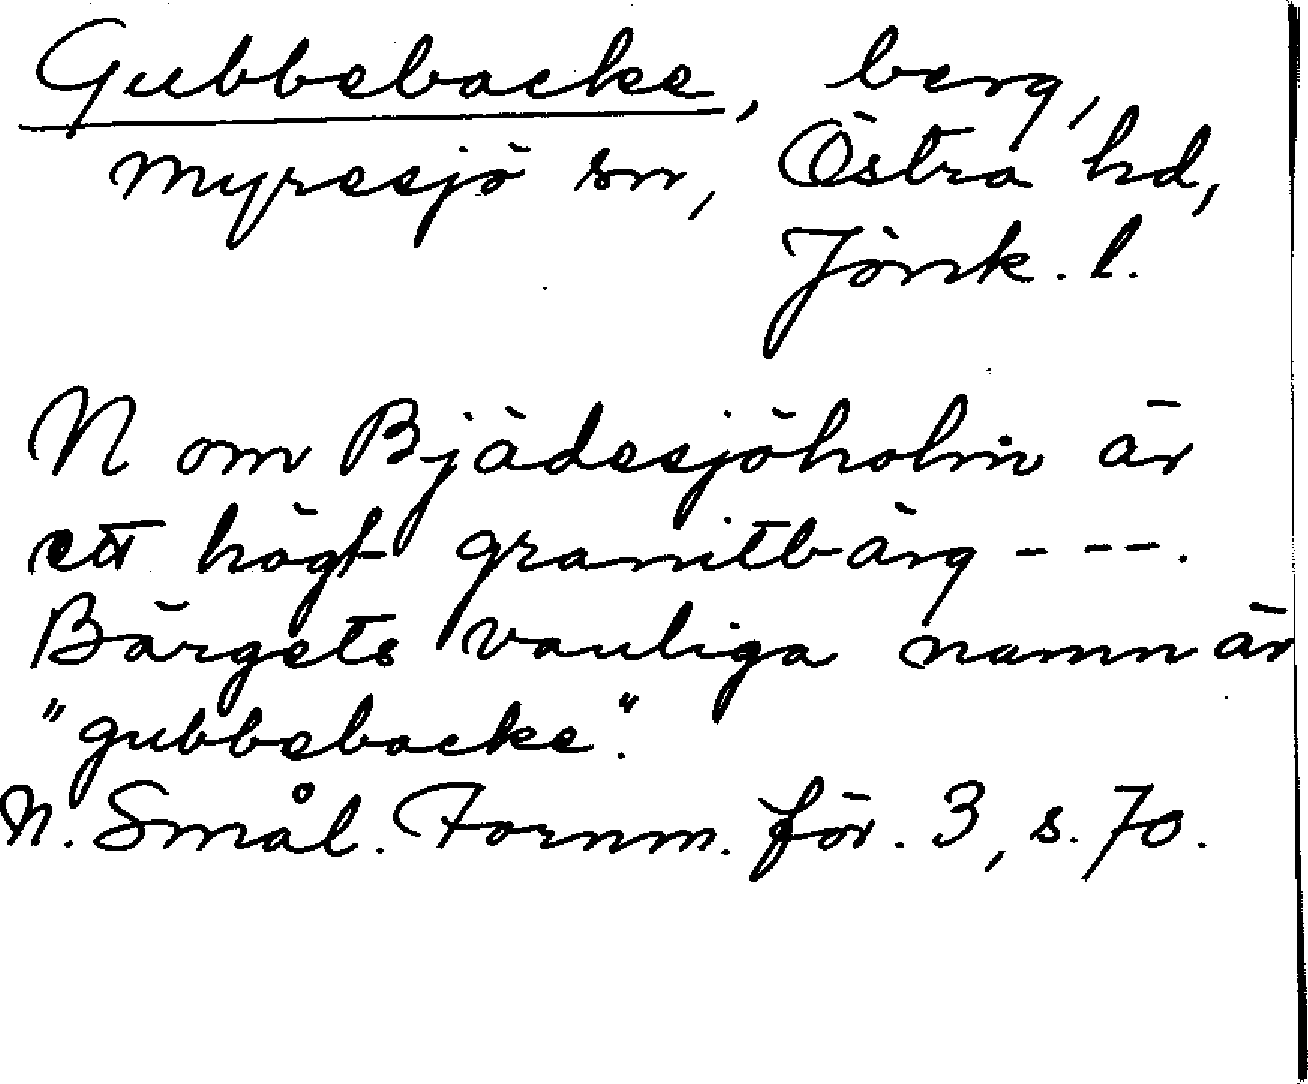 Gubbebacke, berg,
Myresjö sn, Östra hd,
Jönk. l.
N om Bjädesjöholm är
ett högt granitbärg - - -.
Bärgets vanliga namn är
"gubbebacke".
N. Smål. Fornm. för. 3, s. 70.